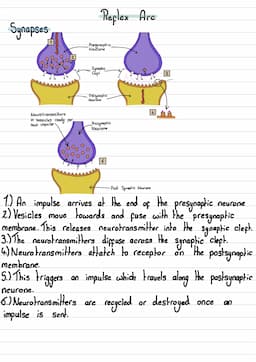 Reflex Arc
Synapses
Presynaptic
neurone
Synaptic
cleft
Postsynaptic
neurone
Neurotransmitters
in vesicles ready for
next impulse
Presynaptic
Neurone
Post Synaptic Neurone
1.) An impulse arrives at the end of the presynaptic neurone.
2) Vesicles move towards and fuse with the presynaptic
membrane. This releases neurotransmitter into the synaptic cleft.
3.) The neurotransmitters diffuse across the synaptic cleft.
4) Neurotransmitters attatch to receptor on the postsynaptic
membrane.
5.) This triggers an impulse which travels along the postsynaptic
neurone.
6.) Neurotransmitters are recycled or destroyed once an
impulse is sent.